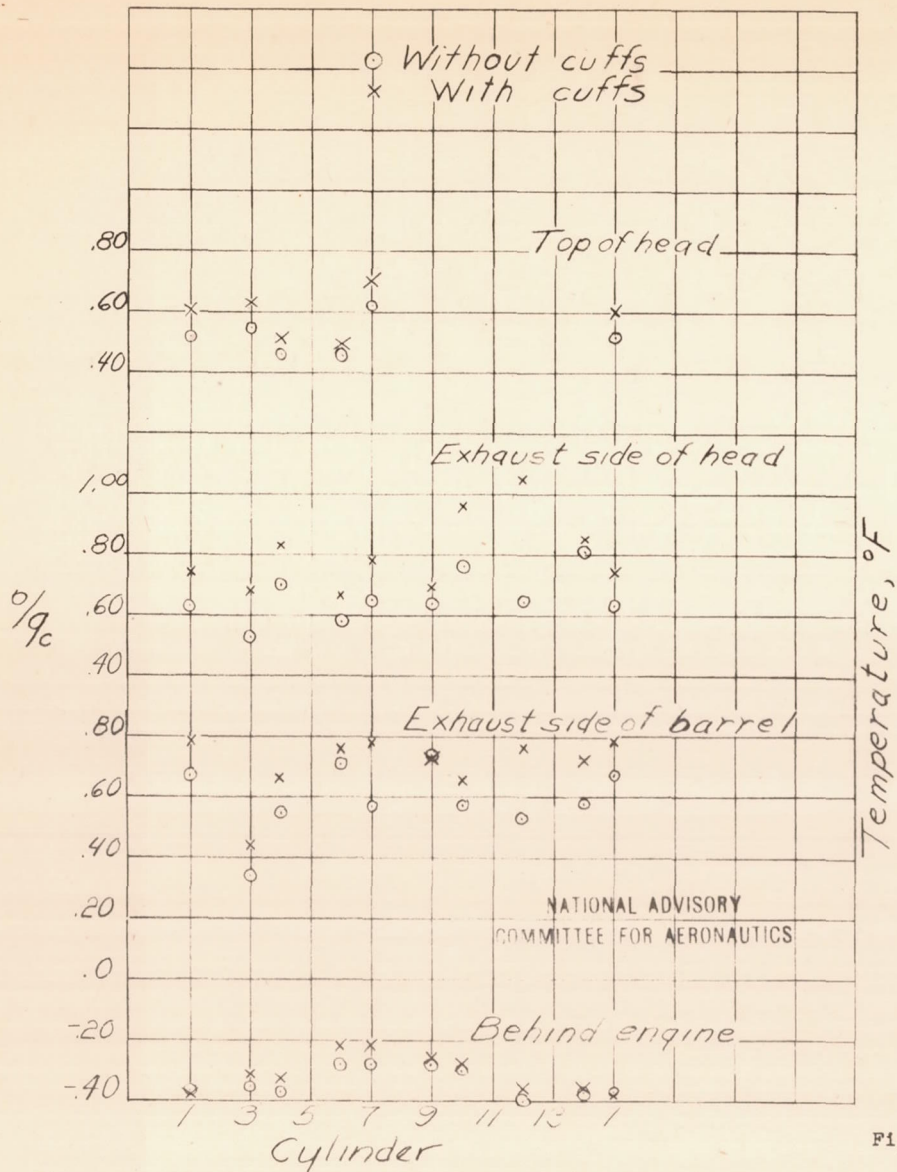 ⊙ Without cuffs
× With cuffs
Top of head
.80
.60
.40
Exhaust side of head
1.00
.80
.60
.40
Exhaust side of barrel
.80
.60
.40
.20
.0
-.20
-.40
NATIONAL ADVISORY
COMMITTEE FOR AERONAUTICS
Behind engine
1 3 5 7 9 11 13 1
Cylinder
Temperature, °F